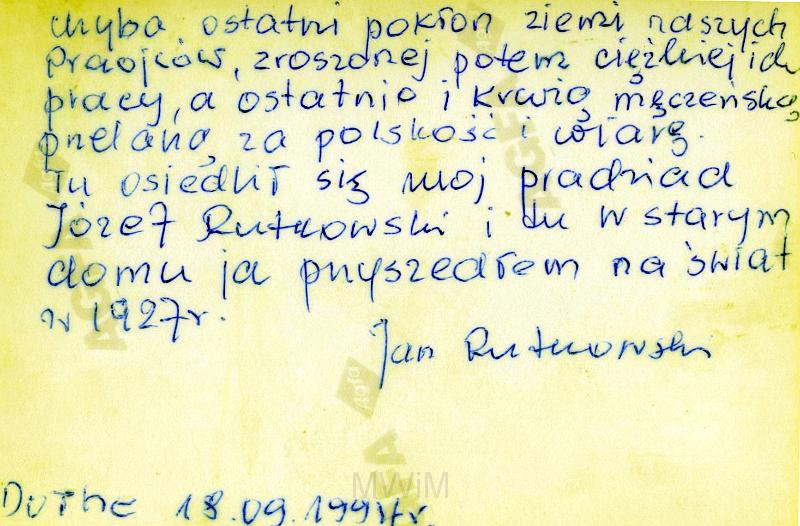 chyba ostatni pokłon ziemi naszych
Praojców, zroszonej potem ciężkiej ich
pracy, a ostatnio i krwią męczeńską
przelaną za polskość i wiarę.
Tu osiedlił się mój pradziad
Józef Rutkowski i tu w starym
domu ja przyszedłem na świat
w 1927r.
Jan Rutkowski
MWiM
18.09.1991r.
AGFA